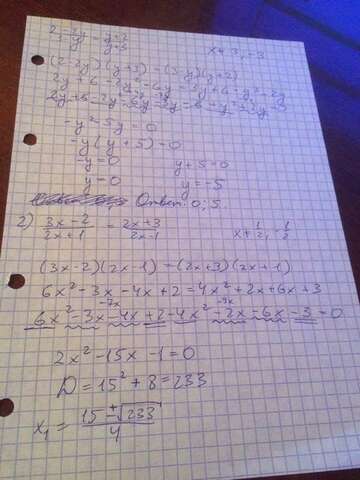 (2-2y)(y+3) = (3-y)(y+2)
2y+6-2y²-6y=3y+6-y²-2y
-y²-5y=0
-y(y+5)=0
-y=0 y+5=0
y=0 y=-5
Ответ: 0; 5.
2) (3x-2)/(2x+1) = (2x+3)/(2x-1) x≠ 1/2, -1/2
(3x-2)(2x-1) = (2x+3)(2x+1)
6x²-3x-4x+2=4x²+2x+6x+3
6x²-3x-4x+2-4x²-2x-6x-3=0
2x²-15x-1=0
D=15²+8=233
x₁= (15±√233)/4